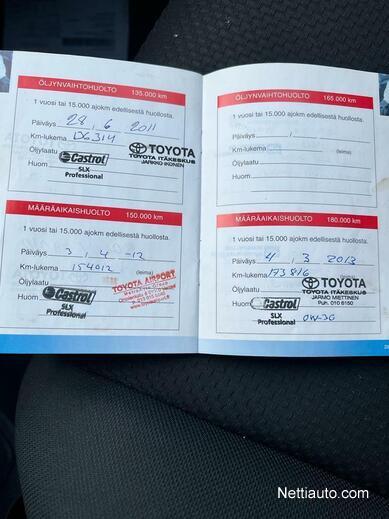 ÖLJYNVAIHTOHUOLTO 135.000 km
1 vuosi tai 15.000 ajokm edellisestä huollosta.
Päiväys 28 . 6 2011
Km-lukema 136314
Öljylaatu Castrol
Huom SLX
Professional
TOYOTA
TOYOTA ITÄKESKUS
JARKKO IKONEN
MÄÄRÄAIKAISHUOLTO 150.000 km
1 vuosi tai 15.000 ajokm edellisestä huollosta.
Päiväys 3 . 4 -12
Km-lukema 154012 (leima)
Öljylaatu
Huom Castrol
SLX
Professional
TOYOTA AIRPORT
ÖLJYNVAIHTOHUOLTO 165.000 km
1 vuosi tai 15.000 ajokm edellisestä huollosta.
Päiväys /
Km-lukema (leima)
Öljylaatu
Huom
MÄÄRÄAIKAISHUOLTO 180.000 km
1 vuosi tai 15.000 ajokm edellisestä huollosta.
Päiväys 4 . 3 2013
Km-lukema 173816 (leima)
Öljylaatu
Huom Castrol
SLX
Professional 0W-30
TOYOTA
TOYOTA ITÄKESKUS
JARMO MIETTINEN
Puh. 010 6150
Nettiauto.com